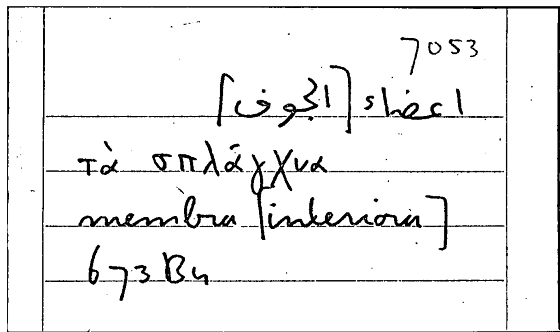 7053
اعضاء [الجوف]
τὰ σπλάγχνα
membra [interiora]
673 B4